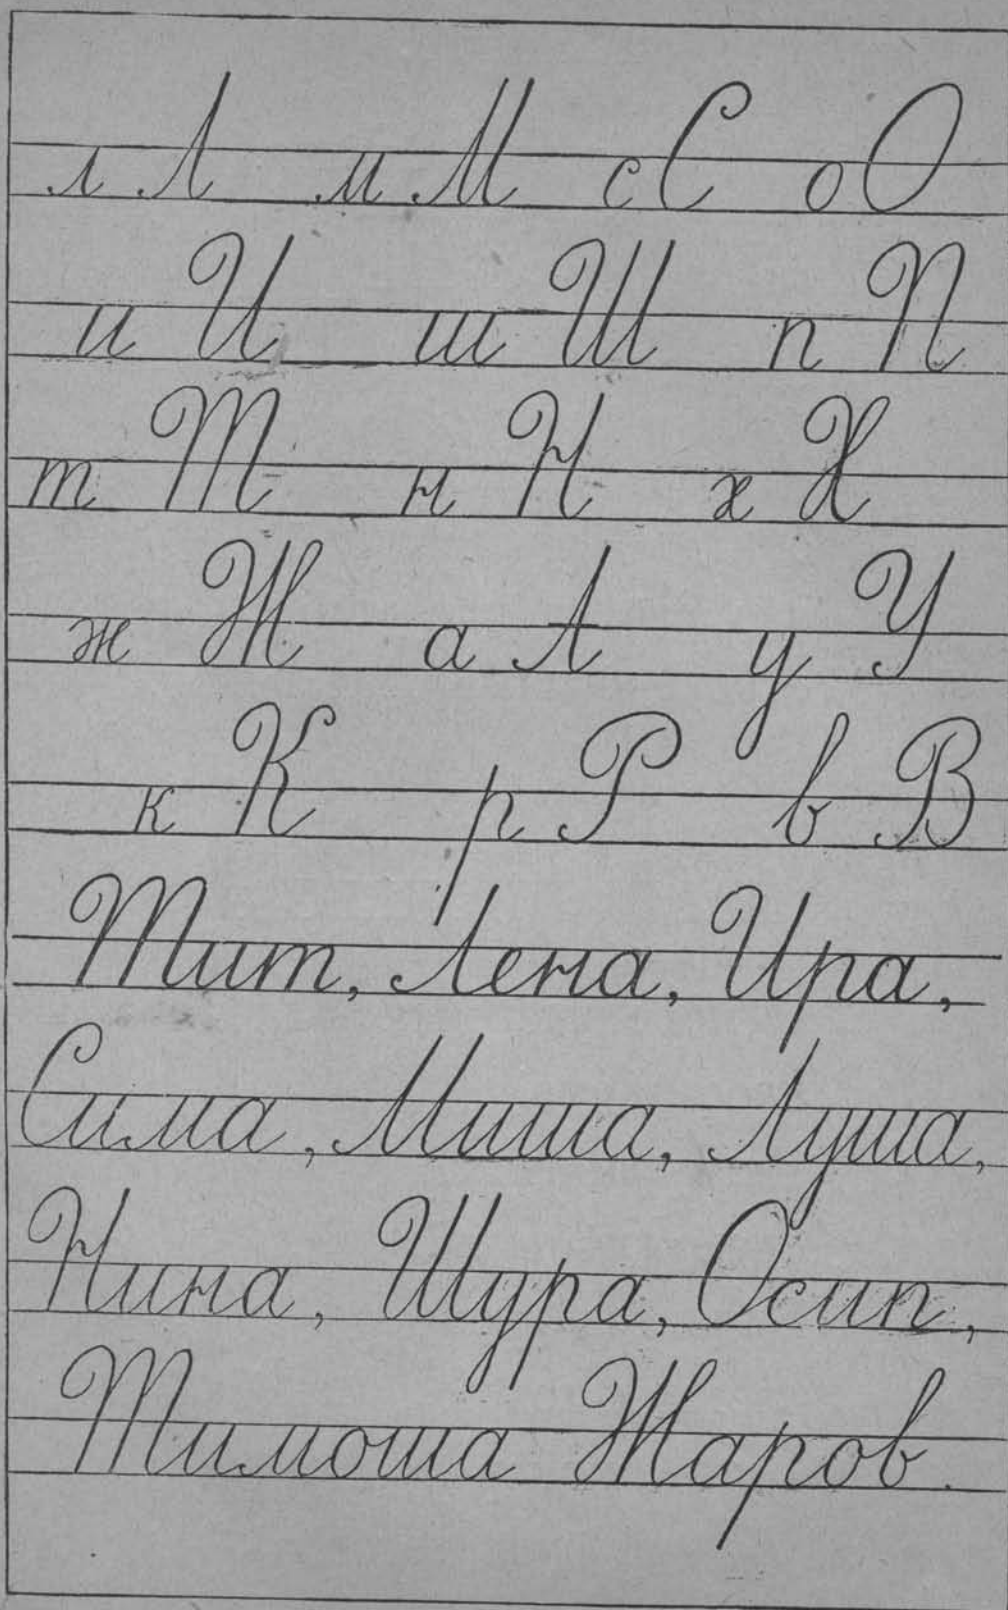 л Л м М с С о О
и И ш Ш п П
т Т н Н х Х
ж Ж а А у У
к К р Р в В
Тит, Лена, Ира,
Сима, Миша, Луша,
Нина, Шура, Осип,
Тимоша Жаров.